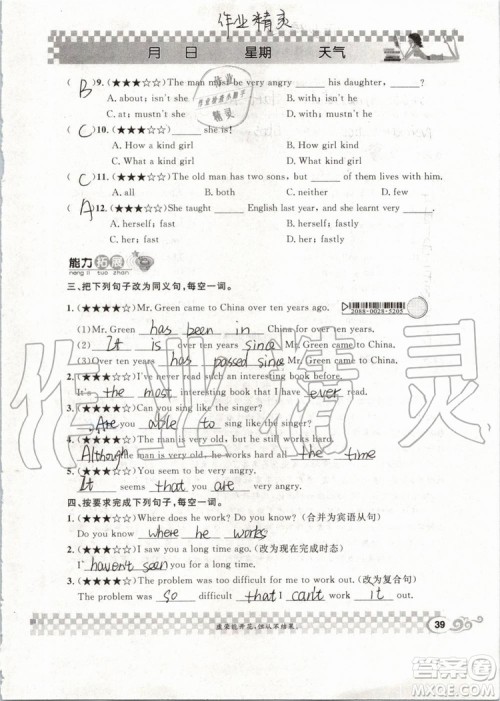 作业精灵
月 日 星期 天气
( B )9. (★★★☆☆) The man must be very angry his daughter, ?
A. about; isn't she B. with; isn't he
C. at; mustn't she D. with; mustn't he
( C )10. (★★★☆☆) she is!
A. How a kind girl B. What kind girl
C. What a kind girl D. How kind girl
( C )11. (★★★☆☆) The old man has two sons, but ______ of them lives with him.
A. all B. both C. neither D. few
( A )12. (★★★☆☆) She taught ______ English last year, and she learnt very ______.
A. herself; fast B. herself; fastly
C. her; fast D. her; fastly
能力拓展
neng li tuo zhan
三、把下列句子改为同义句,每空一词。
1. (★★★★☆) Mr. Green came to China over ten years ago.
2088-0028-5205
(1) Mr. Green has been in China for over ten years.
(2) It is over ten years since Mr. Green came to China.
(3) Over ten years has passed since Mr. Green came to China.
2. (★★★★☆) I've never read such an interesting book before.
It's the most interesting book I've ever read.
3. (★★★★☆) Can you sing like the singer?
Are you able to sing like the singer?
4. (★★★★☆) The man is very old, but he works hard all day.
Although the man is very old, he works hard all the time.
5. (★★★★☆) You are very angry.
It seems that you are very angry.
四、按要求完成下列句子,每空一词。
1. (★★★★☆) Where does he work? Do you know? (合并为宾语从句)
Do you know where he works?
2. (★★★★☆) I saw you a long time ago. (改为现在完成时态)
I haven't seen you for a long time.
3. (★★★★☆) The problem was too difficult for me to work out. (改为复合句)
The problem was so difficult that I can't work it out.
虚荣能开花,但从不结果。
39